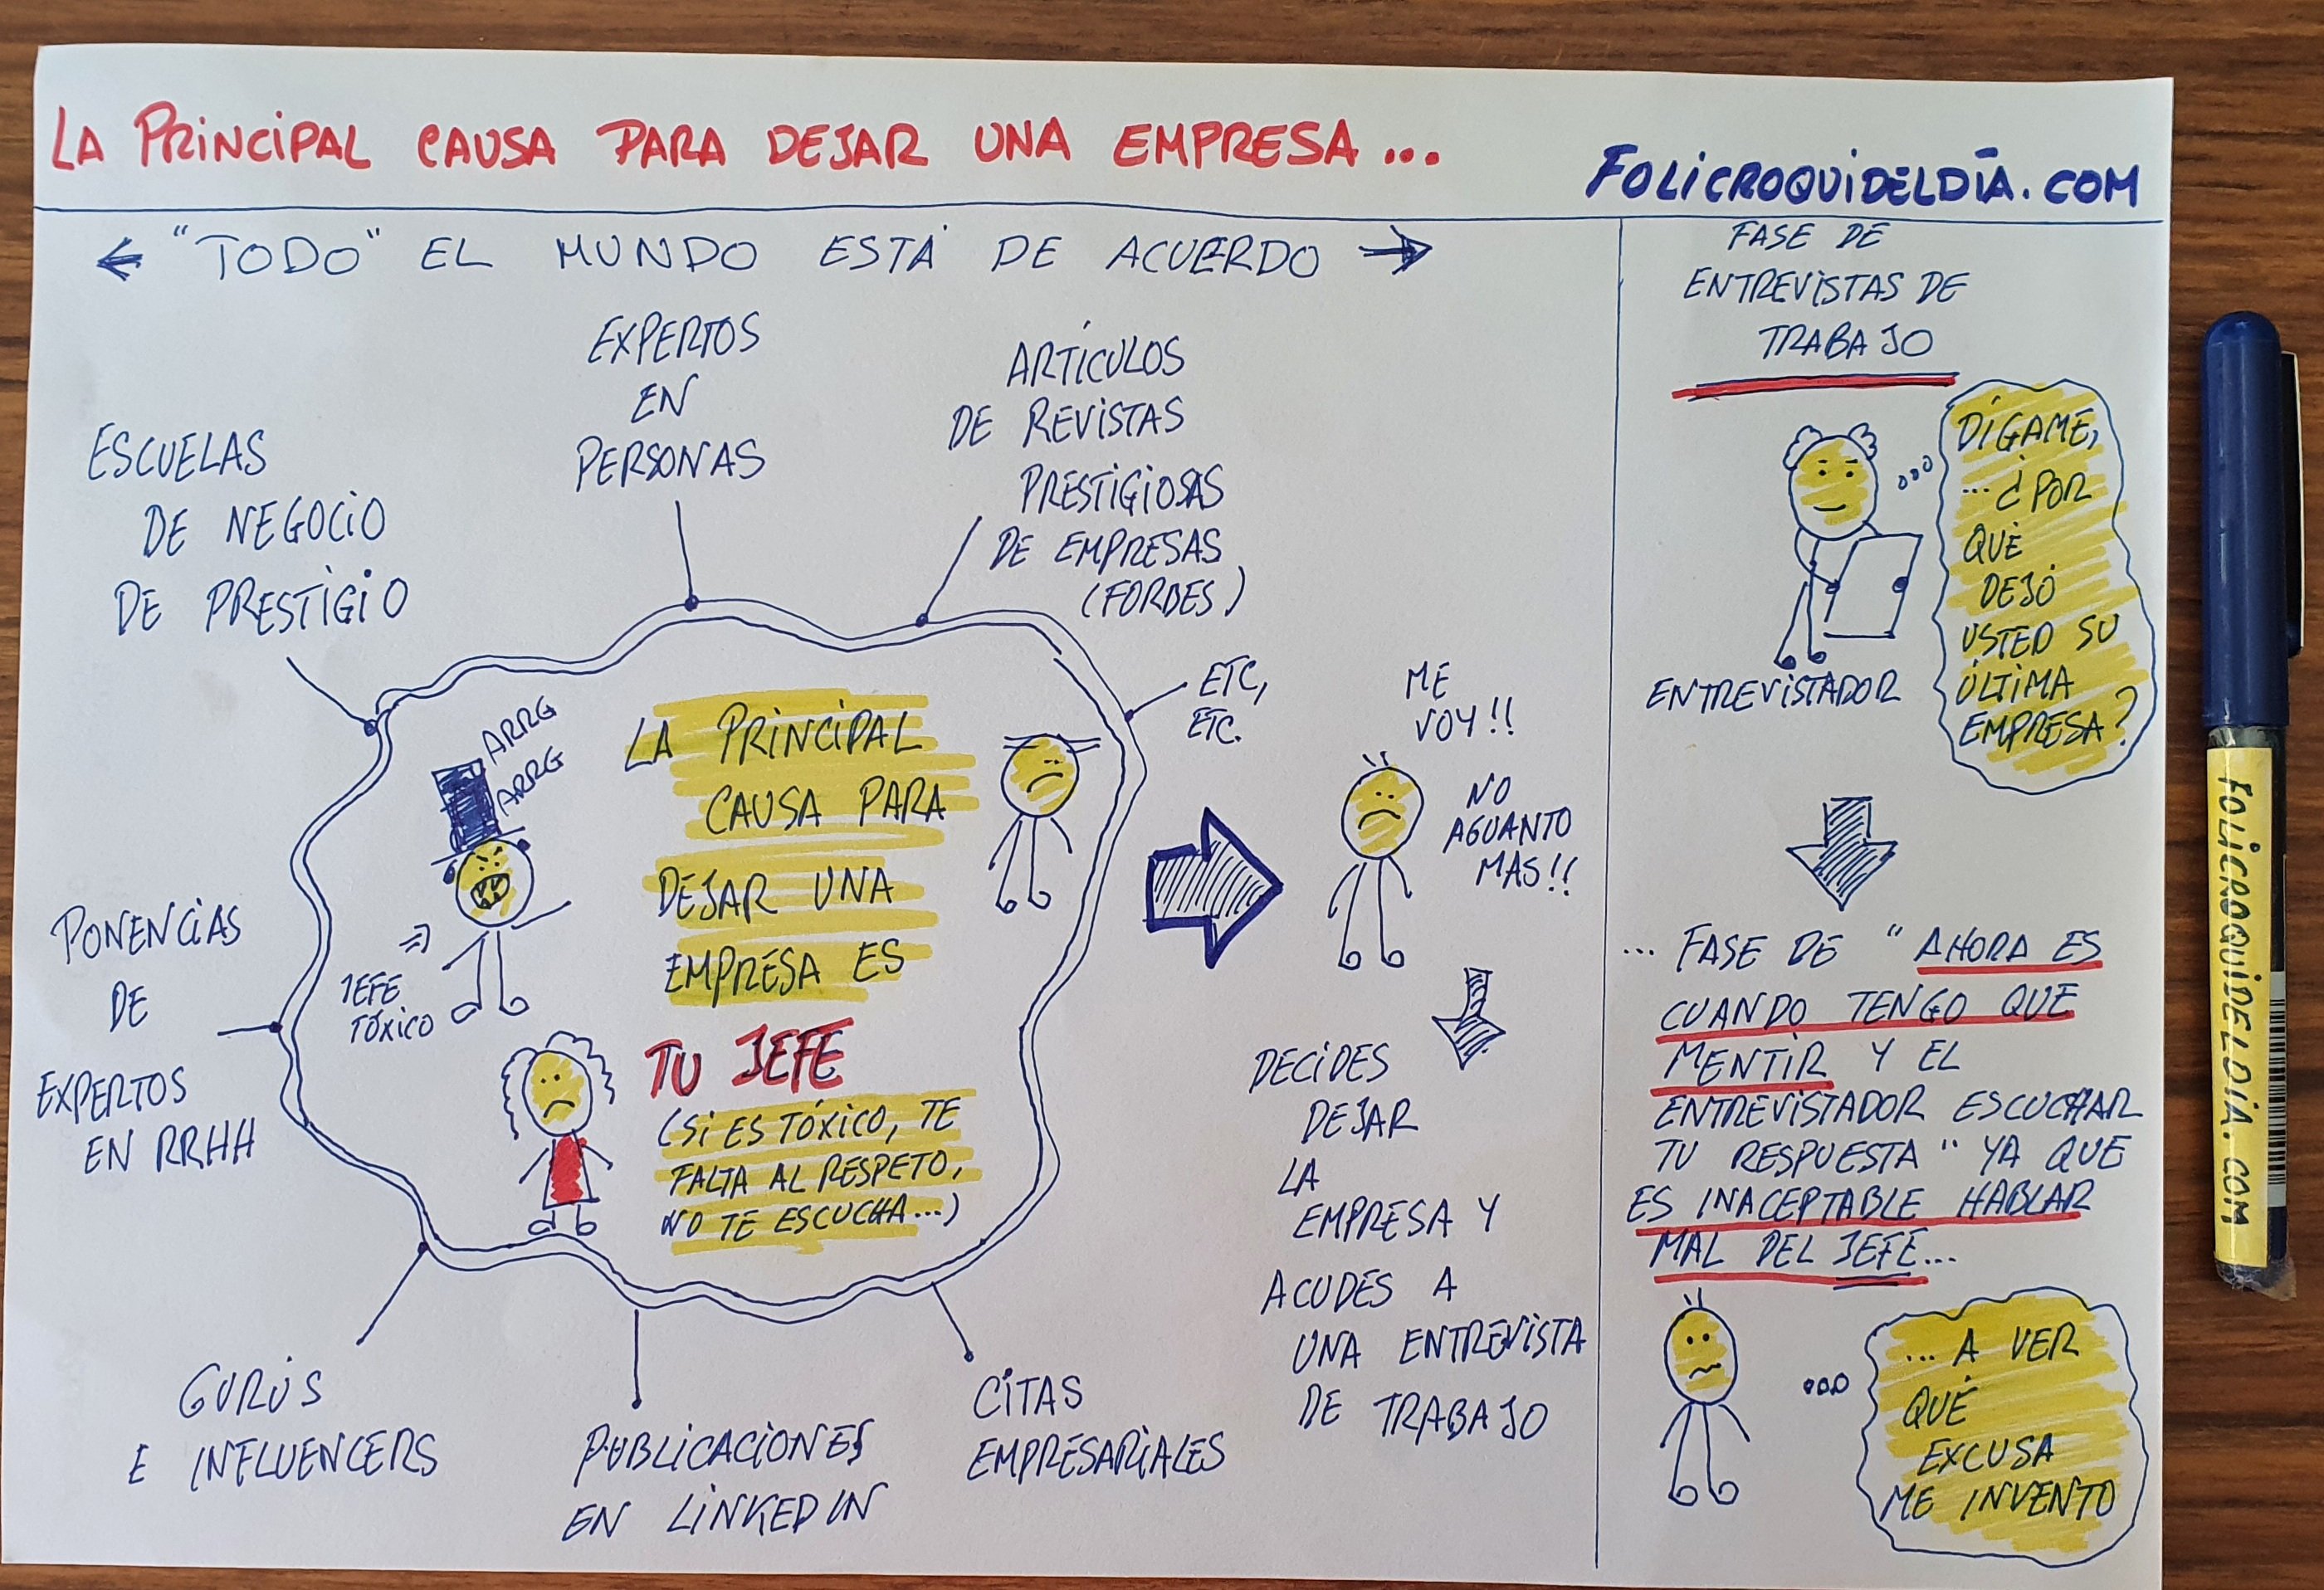 LA PRINCIPAL CAUSA PARA DEJAR UNA EMPRESA...
FOLICROQUIDELDÍA.COM
"TODO" EL MUNDO ESTÁ DE ACUERDO
ESCUELAS
DE NEGOCIO
DE PRESTIGIO
EXPERTOS
EN
PERSONAS
ARTÍCULOS
DE REVISTAS
PRESTIGIOSAS
DE EMPRESAS
(FORBES)
ETC,
ETC.
PONENCIAS
DE
EXPERTOS
EN RRHH
GURÚS
E INFLUENCERS
PUBLICACIONES
EN LINKEDIN
CITAS
EMPRESARIALES
ARRG
ARRG
JEFE
TÓXICO
LA PRINCIPAL
CAUSA PARA
DEJAR UNA
EMPRESA ES
TU JEFE
(SI ES TÓXICO, TE
FALTA AL RESPETO,
NO TE ESCUCHA...)
ME
VOY!!
NO
AGUANTO
MAS!!
DECIDES
DEJAR
LA
EMPRESA Y
ACUDES A
UNA ENTREVISTA
DE TRABAJO
FASE DE
ENTREVISTAS DE
TRABAJO
ENTREVISTADOR
DÍGAME,
... ¿POR
QUÉ
DEJÓ
USTED SU
ÚLTIMA
EMPRESA?
... FASE DE "AHORA ES
CUANDO TENGO QUE
MENTIR Y EL
ENTREVISTADOR ESCUCHAR
TU RESPUESTA" YA QUE
ES INACEPTABLE HABLAR
MAL DEL JEFE...
... A VER
QUÉ
EXCUSA
ME INVENTO
FOLICROQUIDELDÍA.COM